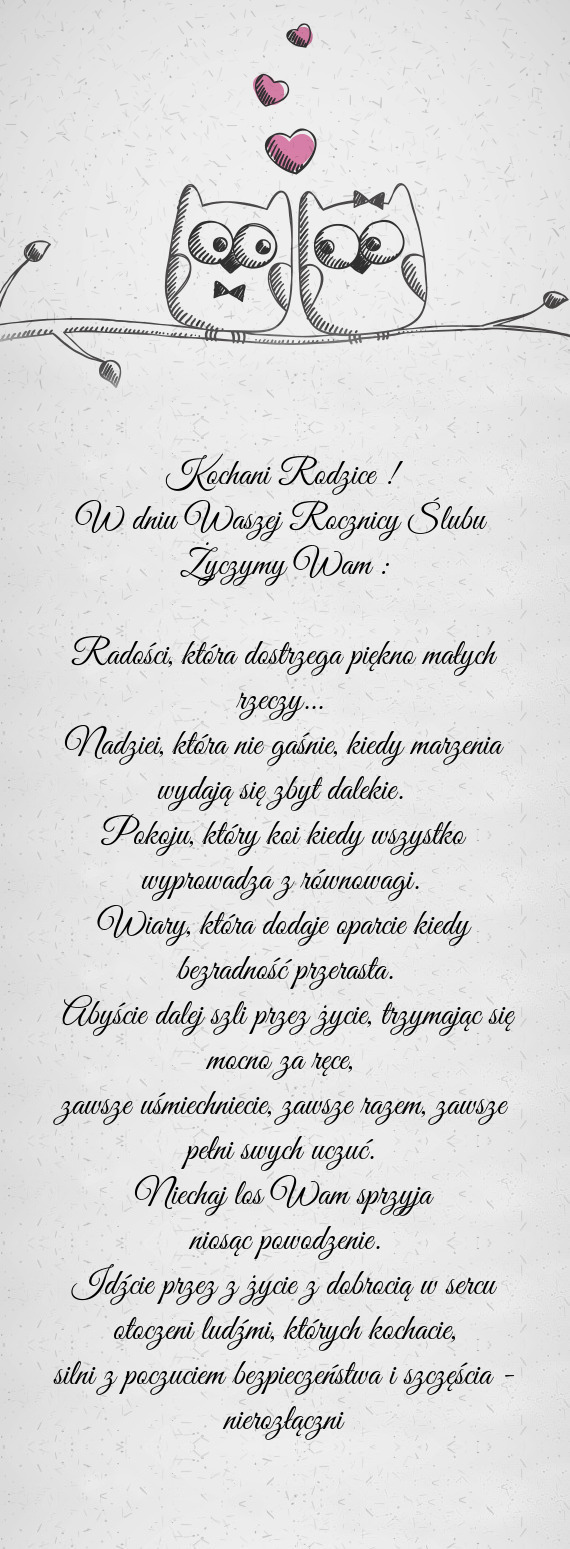 Kochani Rodzice !
W dniu Waszej Rocznicy Ślubu
Życzymy Wam :
Radości, która dostrzega piękno małych
rzeczy...
Nadziei, która nie gaśnie, kiedy marzenia
wydają się zbyt dalekie.
Pokoju, który koi kiedy wszystko
wyprowadza z równowagi.
Wiary, która dodaje oparcie kiedy
bezradność przerasta.
Abyście dalej szli przez życie, trzymając się
mocno za ręce,
zawsze uśmiechniecie, zawsze razem, zawsze
pełni swych uczuć.
Niechaj los Wam sprzyja
niosąc powodzenie.
Idźcie przez z życie z dobrocią w sercu
otoczeni ludźmi, których kochacie,
silni z poczuciem bezpieczeństwa i szczęścia -
nierozłączni